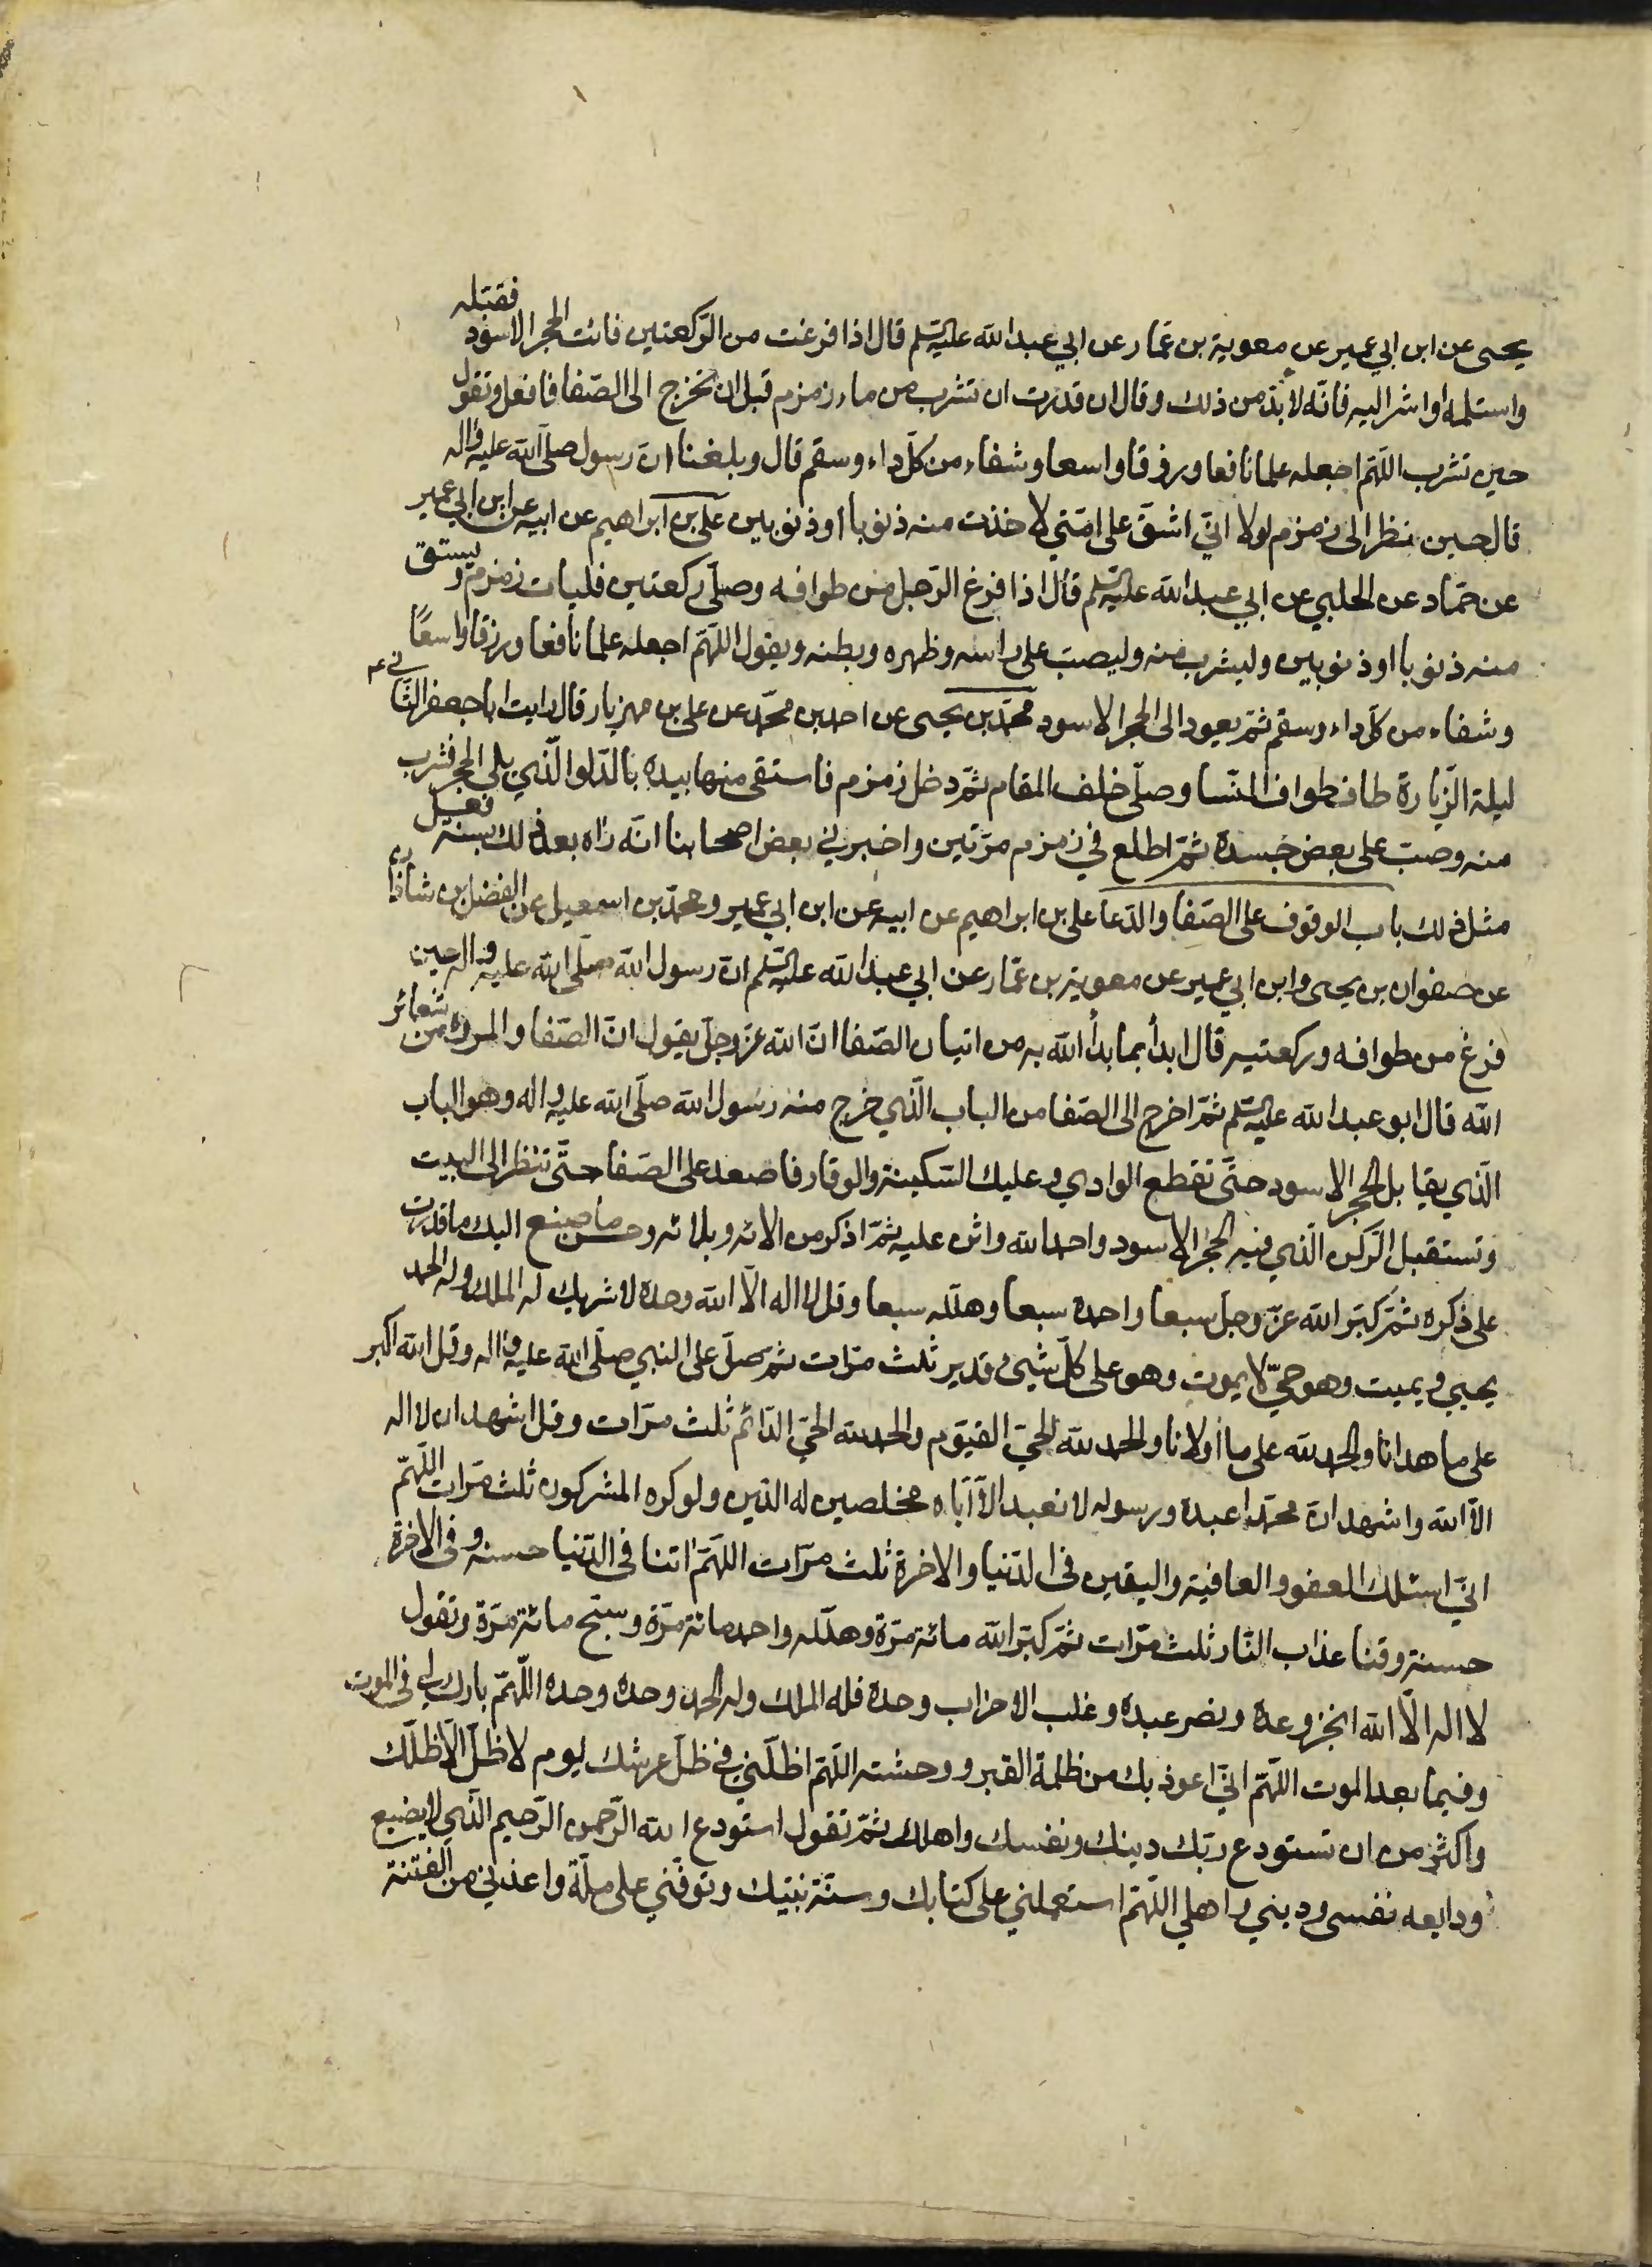 يحيى عن ابن ابي عمير عن معوية بن عمّار عن ابي عبدالله عليه السّلم قال اذا فرغت من الرّكعتين فائت الحجر الاسود فقبّله
واستلمه او اشر اليه فانّه لا بدّ من ذلك وقال ان قدرت ان تشرب من ماء زمزم قبل ان تخرج الى الصّفا فافعل وتقول
حين تشرب اللّهمّ اجعله علما نافعا ورزقا واسعا وشفاء من كلّ داء وسقم قال وبلغنا انّ رسول صلّى الله عليه واله
قال حين نظر الى زمزم لولا انّي اشقّ على امّتي لاخذت منه ذنوبا او ذنوبين علي بن ابراهيم عن ابيه عن ابن ابي عمير
عن حمّاد عن الحلبي عن ابي عبدالله عليه السّلم قال اذا فرغ الرّجل من طوافه وصلّى ركعتين فليات زمزم ويستق
منه ذنوبا او ذنوبين وليشرب منه وليصبّ على راسه وظهره وبطنه ويقول اللّهمّ اجعله علما نافعا ورزقا واسعًا
وشفاء من كلّ داء وسقم ثمّ يعود الى الحجر الاسود محمّد بن يحيى عن احمد بن محمّد عن علي بن مهزيار قال رايت ابا جعفر الثّاني ع
ليلة الزّيارة طاف طواف النّسا وصلّى خلف المقام ثمّ دخل زمزم فاستقى منها بيده بالدّلو الّذي يلي الحجر فشرب
منه وصبّ على بعض جسده ثمّ اطلع في زمزم مرّتين واخبرني بعض اصحابنا انّه راه بعد ذلك بسنة فعل
مثل ذلك باب الوقوف على الصّفا والدّعا علي بن ابراهيم عن ابيه عن ابن ابي عمير ومحمّد بن اسمعيل عن الفضل بن شاذان
عن صفوان بن يحيى وابن ابي عمير عن معوية بن عمّار عن ابي عبدالله عليه السّلم انّ رسول الله صلّى الله عليه واله حين
فرغ من طوافه وركعتيه قال ابدأ بما بدأ الله به من اتيان الصّفا انّ الله عزّ وجلّ يقول انّ الصّفا والمروة من شعائر
الله قال ابو عبدالله عليه السّلم ثمّ اخرج الى الصّفا من الباب الّذي خرج منه رسول الله صلّى الله عليه واله وهو الباب
الّذي يقابل الحجر الاسود حتّى تقطع الوادي وعليك السّكينة والوقار فاصعد على الصّفا حتّى تنظر الى البيت
وتستقبل الرّكن الّذي فيه الحجر الاسود واحمد الله واثن عليه ثمّ اذكر من الائه وبلائه وحسن ما صنع اليك ما قدرت
على ذكره ثمّ كبّر الله عزّ وجلّ سبعا واحمده سبعا وهلّله سبعا وقل لا اله الّا الله وحده لا شريك له له الملك وله الحمد
يحيي ويميت وهو حيّ لا يموت وهو على كلّ شيء قدير ثلث مرّات ثمّ صلّ على النبي صلّى الله عليه واله وقل الله اكبر
على ما هدانا والحمد لله على ما اولانا والحمد لله الحيّ القيّوم والحمد لله الحيّ الدّائم ثلث مرّات وقل اشهد ان لا اله
الّا الله واشهد انّ محمّدا عبده ورسوله لا نعبد الّا ايّاه مخلصين له الدّين ولو كره المشركون ثلث مرّات اللّهمّ
انّي اسئلك العفو والعافية واليقين في الدّنيا والاخرة ثلث مرّات اللّهمّ اتنا في الدّنيا حسنه وفي الاخرة
حسنة وقنا عذاب النّار ثلث مرّات ثمّ كبّر الله مائة مرّة وهلّله واحمد مائة مرّة وسبّح مائة مرّة وتقول
لا اله الّا الله انجز وعده ونصر عبده وغلب الاحزاب وحده فله الملك وله الحمد وحده وحده اللّهمّ بارك لي في الموت
وفيما بعد الموت اللّهمّ انّي اعوذ بك من ظلمة القبر ووحشته اللّهمّ اظلّني في ظلّ عرشك يوم لا ظلّ الّا ظلّك
واكثر من ان تستودع ربّك دينك ونفسك واهلك ثمّ تقول استودع الله الرّحمن الرّحيم الّذي لا يضيع
ودايعه نفسي وديني واهلي اللّهمّ استعملني على كتابك وسنّة نبيّك وتوفّني على ملّة واعذني من الفتنة